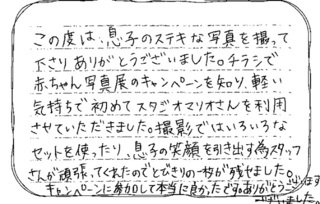 この度は、息子のステキな写真を撮って
下さりありがとうございました。チラシで
赤ちゃん写真展のキャンペーンを知り、軽い
気持ちで初めてスタジオマリオさんを利用
させていただきました。撮影ではいろいろな
セットを使ったり、息子の笑顔を引き出す為スタッフ
さんが頑張ってくれたのでとびきりの一枚が残せました。
キャンペーンに参加して本当に良かったですありがとう
ございました。